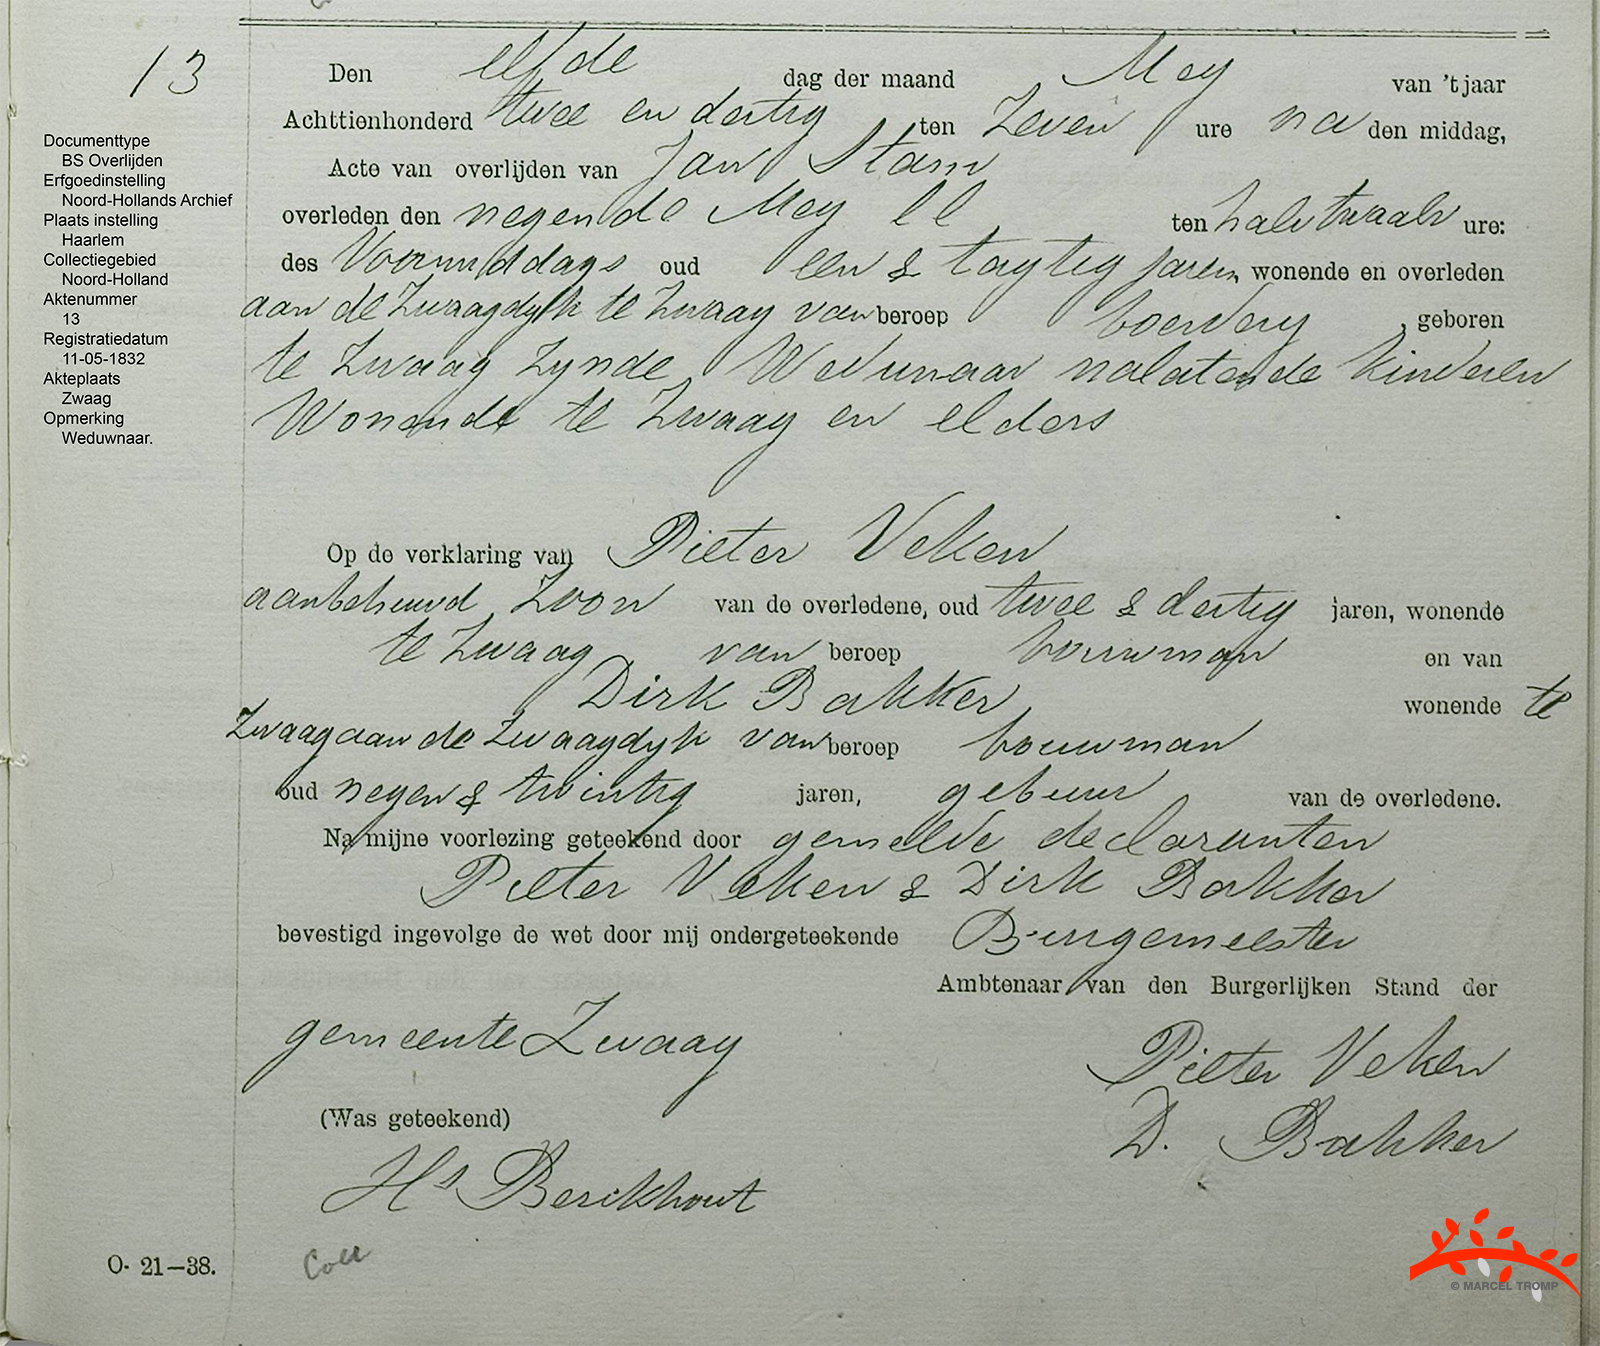 13
Documenttype
BS Overlijden
Erfgoedinstelling
Noord-Hollands Archief
Plaats instelling
Haarlem
Collectiegebied
Noord-Holland
Aktenummer
13
Registratiedatum
11-05-1832
Akteplaats
Zwaag
Opmerking
Weduwnaar.
Den elfde dag der maand Mey van 't jaar
Achttienhonderd twee en dertig ten Zeven ure na den middag,
Acte van overlijden van Jan Stam
overleden den negende Mey ll ten half twaalf ure:
des Voormiddags oud een & tagtig jaren wonende en overleden
aan de Zwaagdyk te Zwaag van beroep boerdery, geboren
te Zwaag Zynde Weduwnaar nalatende Kinderen
Wonende te Zwaag en elders
Op de verklaring van Pieter Veken
aanbehuwd Zoon van de overledene, oud twee & dertig jaren, wonende
te Zwaag van beroep bouwman en van
Dirk Bakker wonende te
Zwaag aan de Zwaagdyk van beroep bouwman
oud negen & twintig jaren, gebuur van de overledene.
Na mijne voorlezing geteekend door gemelde declaranten
Pieter Veken & Dirk Bakker
bevestigd ingevolge de wet door mij ondergeteekende Burgemeester
Ambtenaar van den Burgerlijken Stand der
gemeente Zwaag
Pieter Veken
(Was geteekend)
D. Bakker
Hs Berckhout
O. 21–38.
Coll
© MARCEL TROMP